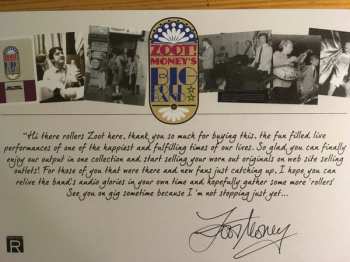 ZOOT
MONEY'S
BIG
ROLL
BAND
"Hi there rollers Zoot here, thank you so much for buying this, the fun filled, live
performances of one of the happiest and fulfilling times of our lives. So glad, you can finally
enjoy our output in one collection and start selling your worn out originals on web site selling
outlets! For those of you that were there and new fans just catching up, I hope you can
relive the band's audio glories in your own time and hopefully gather some more 'rollers'
See you on gig sometime because I'm not stopping just yet...
Zoot Money
R